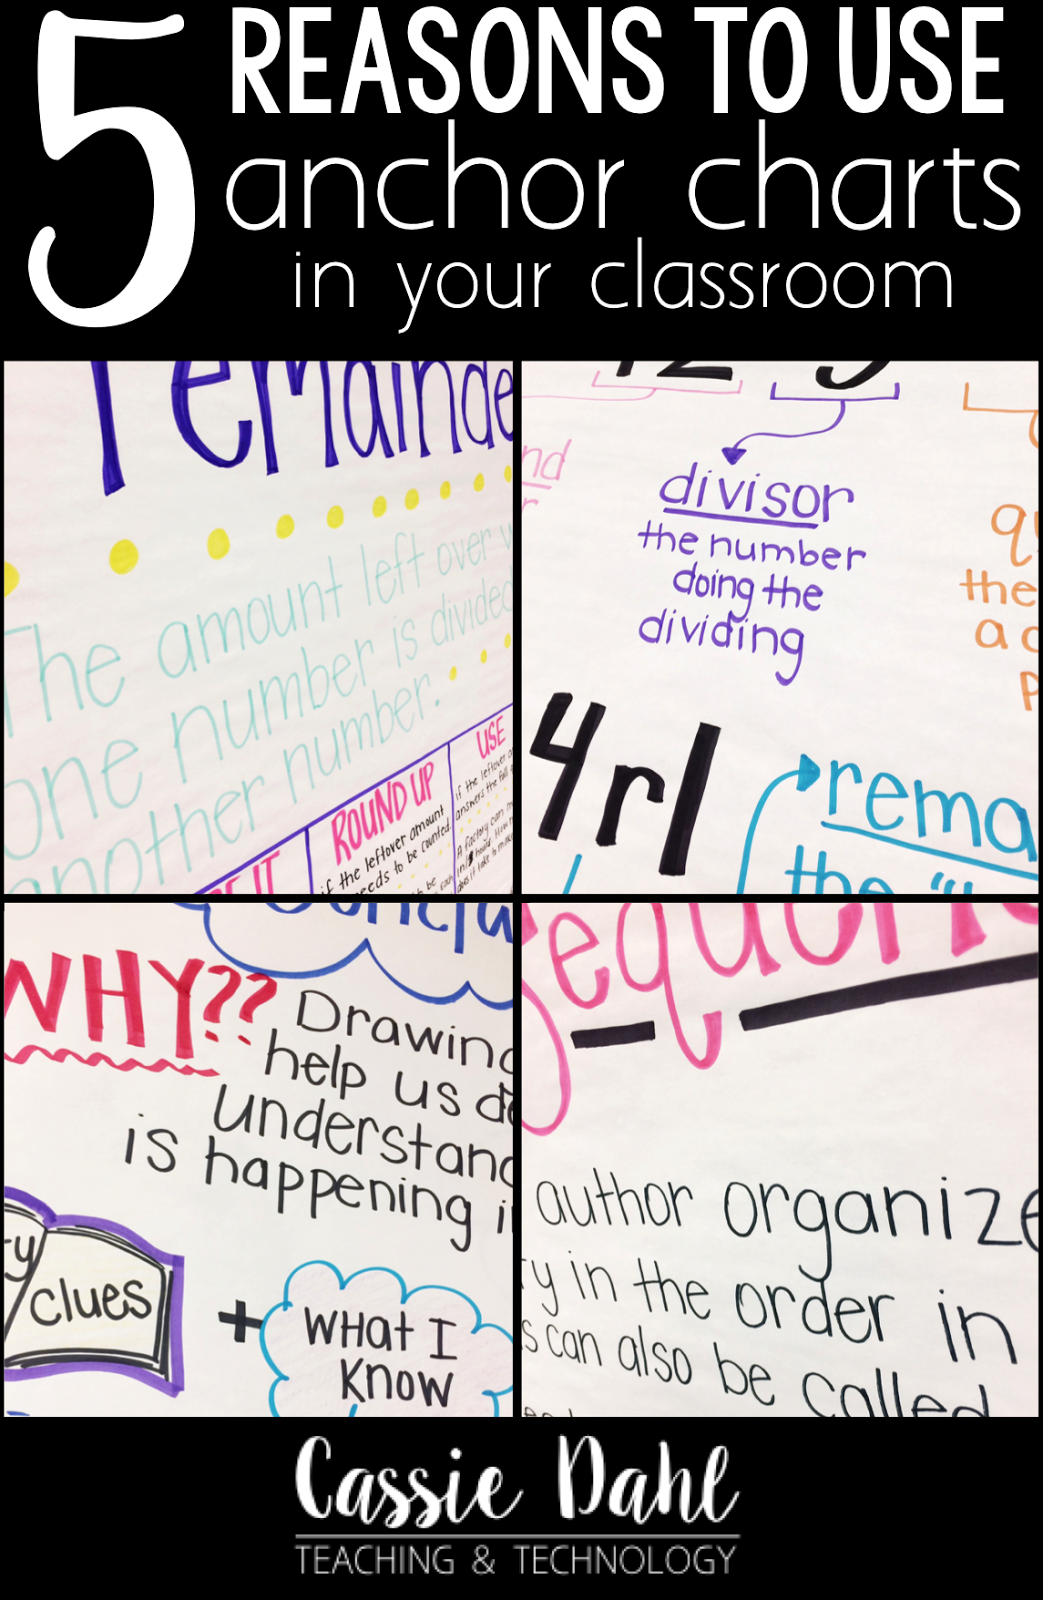 5 REASONS TO USE
anchor charts
in your classroom
remainde
The amount left over w
one number is divided
another number.
IT
ROUND UP
if the leftover amount
needs to be counted.
USE
if the leftover
answers the full
A factory can
12 3
nd
r
divisor
the number
doing the
dividing
qu
the
a
p
4r1
rema
the "l
Conclu
WHY??
Drawing
help us de
understand
is happening i
ry
clues
+
WHAT I
KNOW
Sequenc
author organize
ry in the order in
s can also be called
Cassie Dahl
TEACHING & TECHNOLOGY